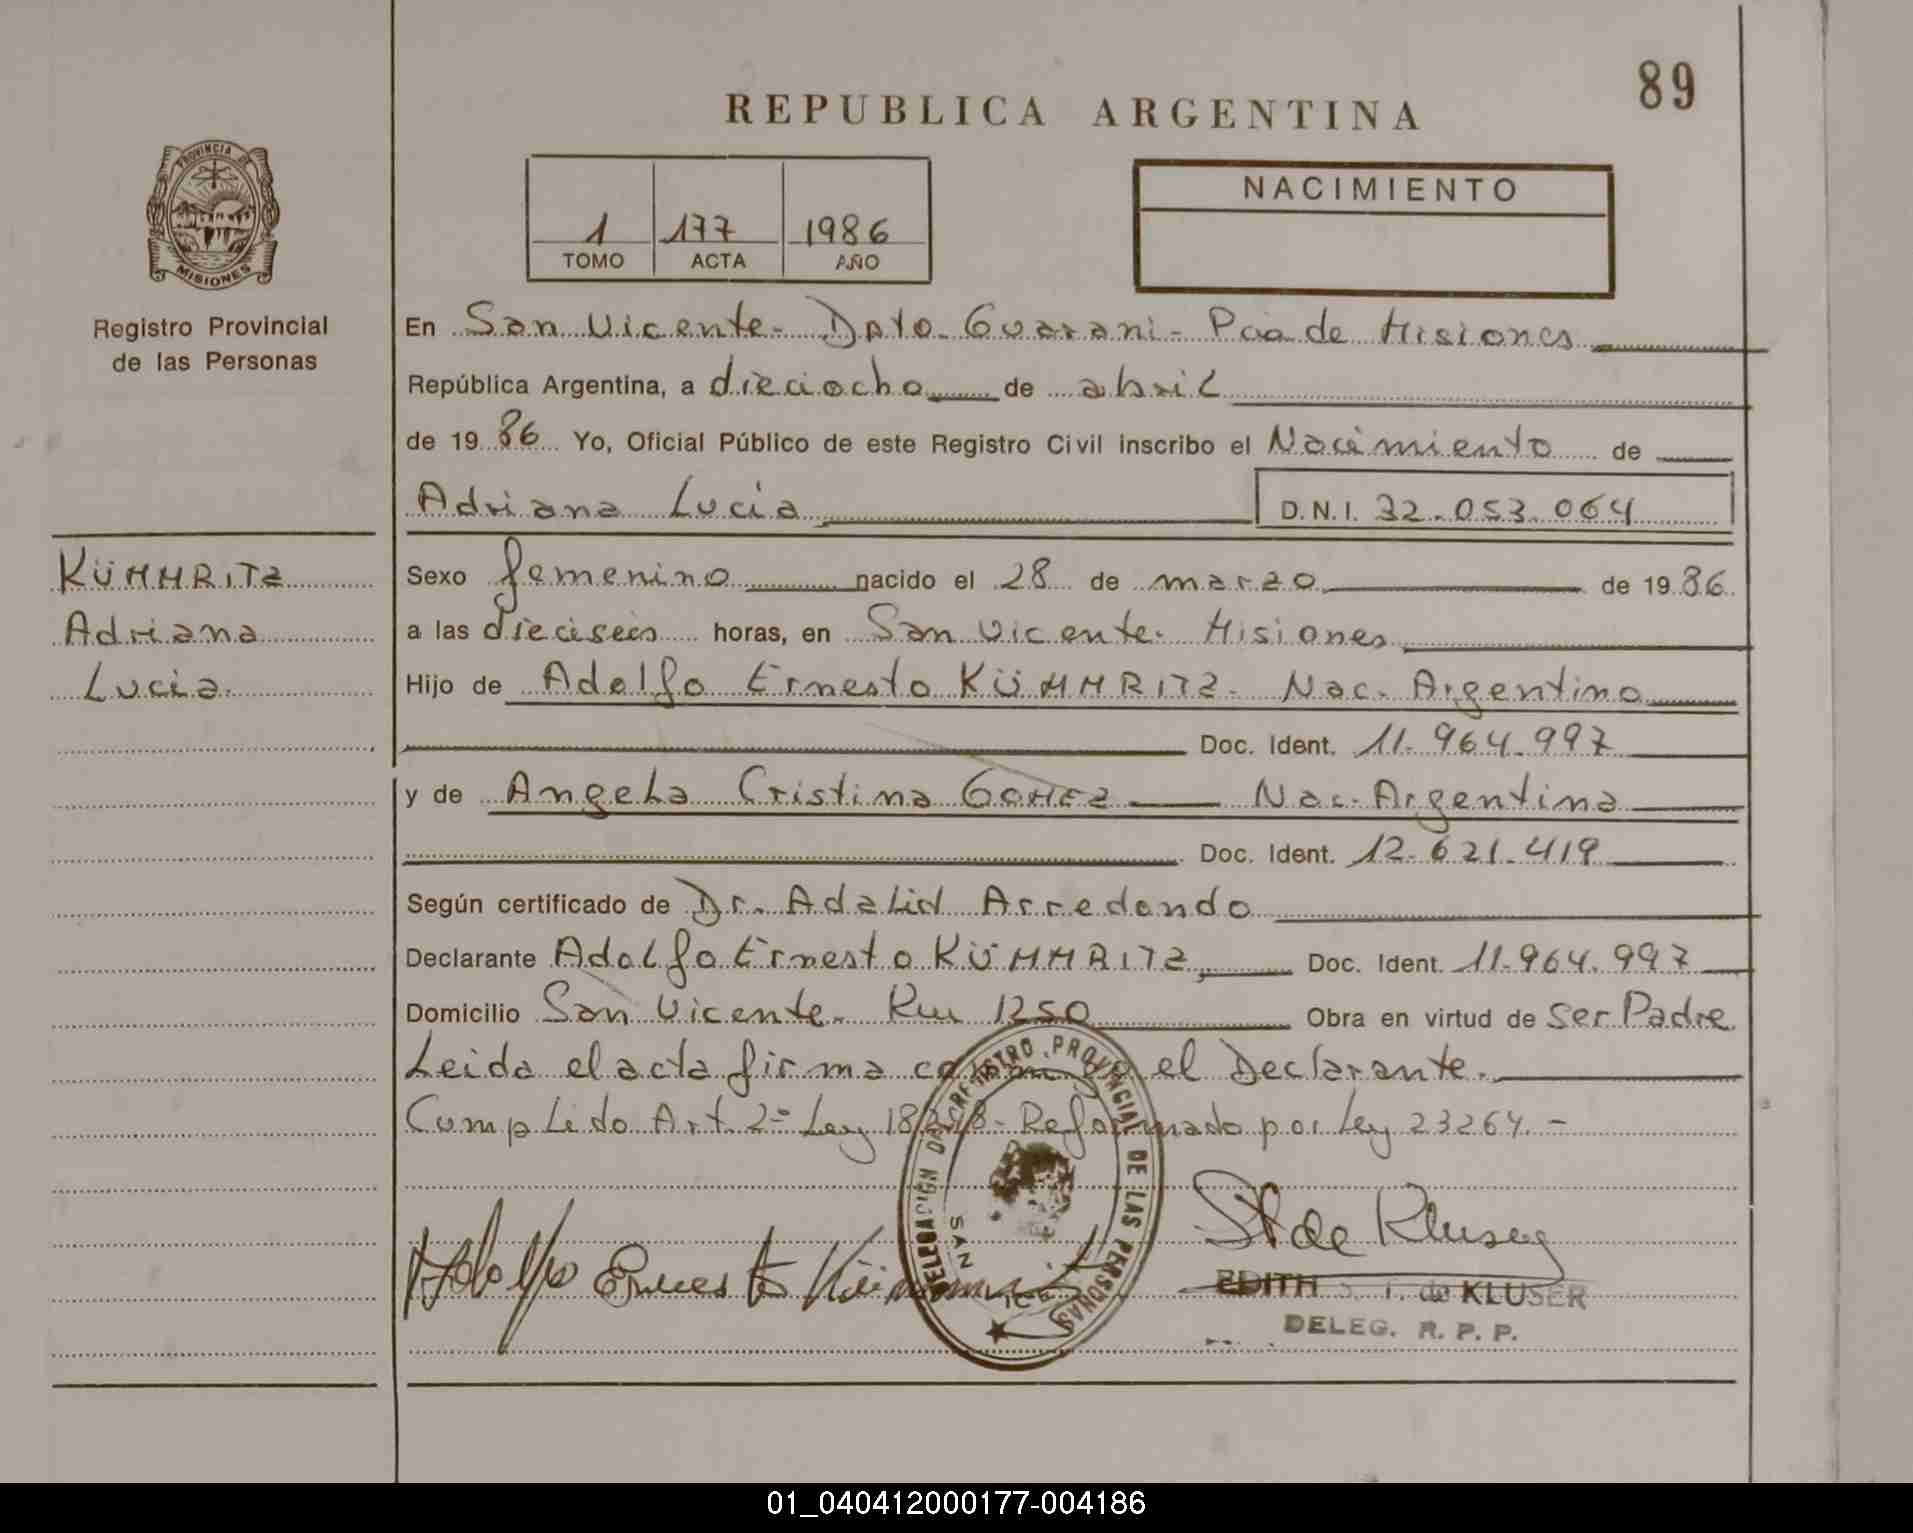 89
REPUBLICA ARGENTINA
PROVINCIA DE
MISIONES
Registro Provincial
de las Personas
1 177 1986
TOMO ACTA AÑO
NACIMIENTO
En San Vicente- Dpto. Guarani- Pcia de Misiones
República Argentina, a dieciocho de abril
de 19 86 Yo, Oficial Público de este Registro Civil inscribo el Nacimiento de
Adriana Lucia D.N.I. 32.053.064
KÜMMRITZ
Adriana
Lucia.
Sexo femenino nacido el 28 de marzo de 19 86
a las dieciseis horas, en San Vicente- Misiones
Hijo de Adolfo Ernesto KÜMMRITZ- Nac. Argentino
Doc. Ident. 11.964.997
y de Angela Cristina GOMEZ Nac. Argentina
Doc. Ident. 12.621.419
Según certificado de Dr. Adalid Arredondo
Declarante Adolfo Ernesto KÜMMRITZ Doc. Ident. 11.964.997
Domicilio San Vicente- Km 1250 Obra en virtud de ser Padre
Leida el acta firma conmigo el Declarante.
Cumplido Art. 2º Ley 18248- Reformado por Ley 23264.-
DELEGACION DEL REGISTRO PROVINCIAL DE LAS PERSONAS
SAN
Adolfo Ernesto
de Kluser
EDITH S. I. de KLUSER
DELEG. R. P. P.
01_040412000177-004186